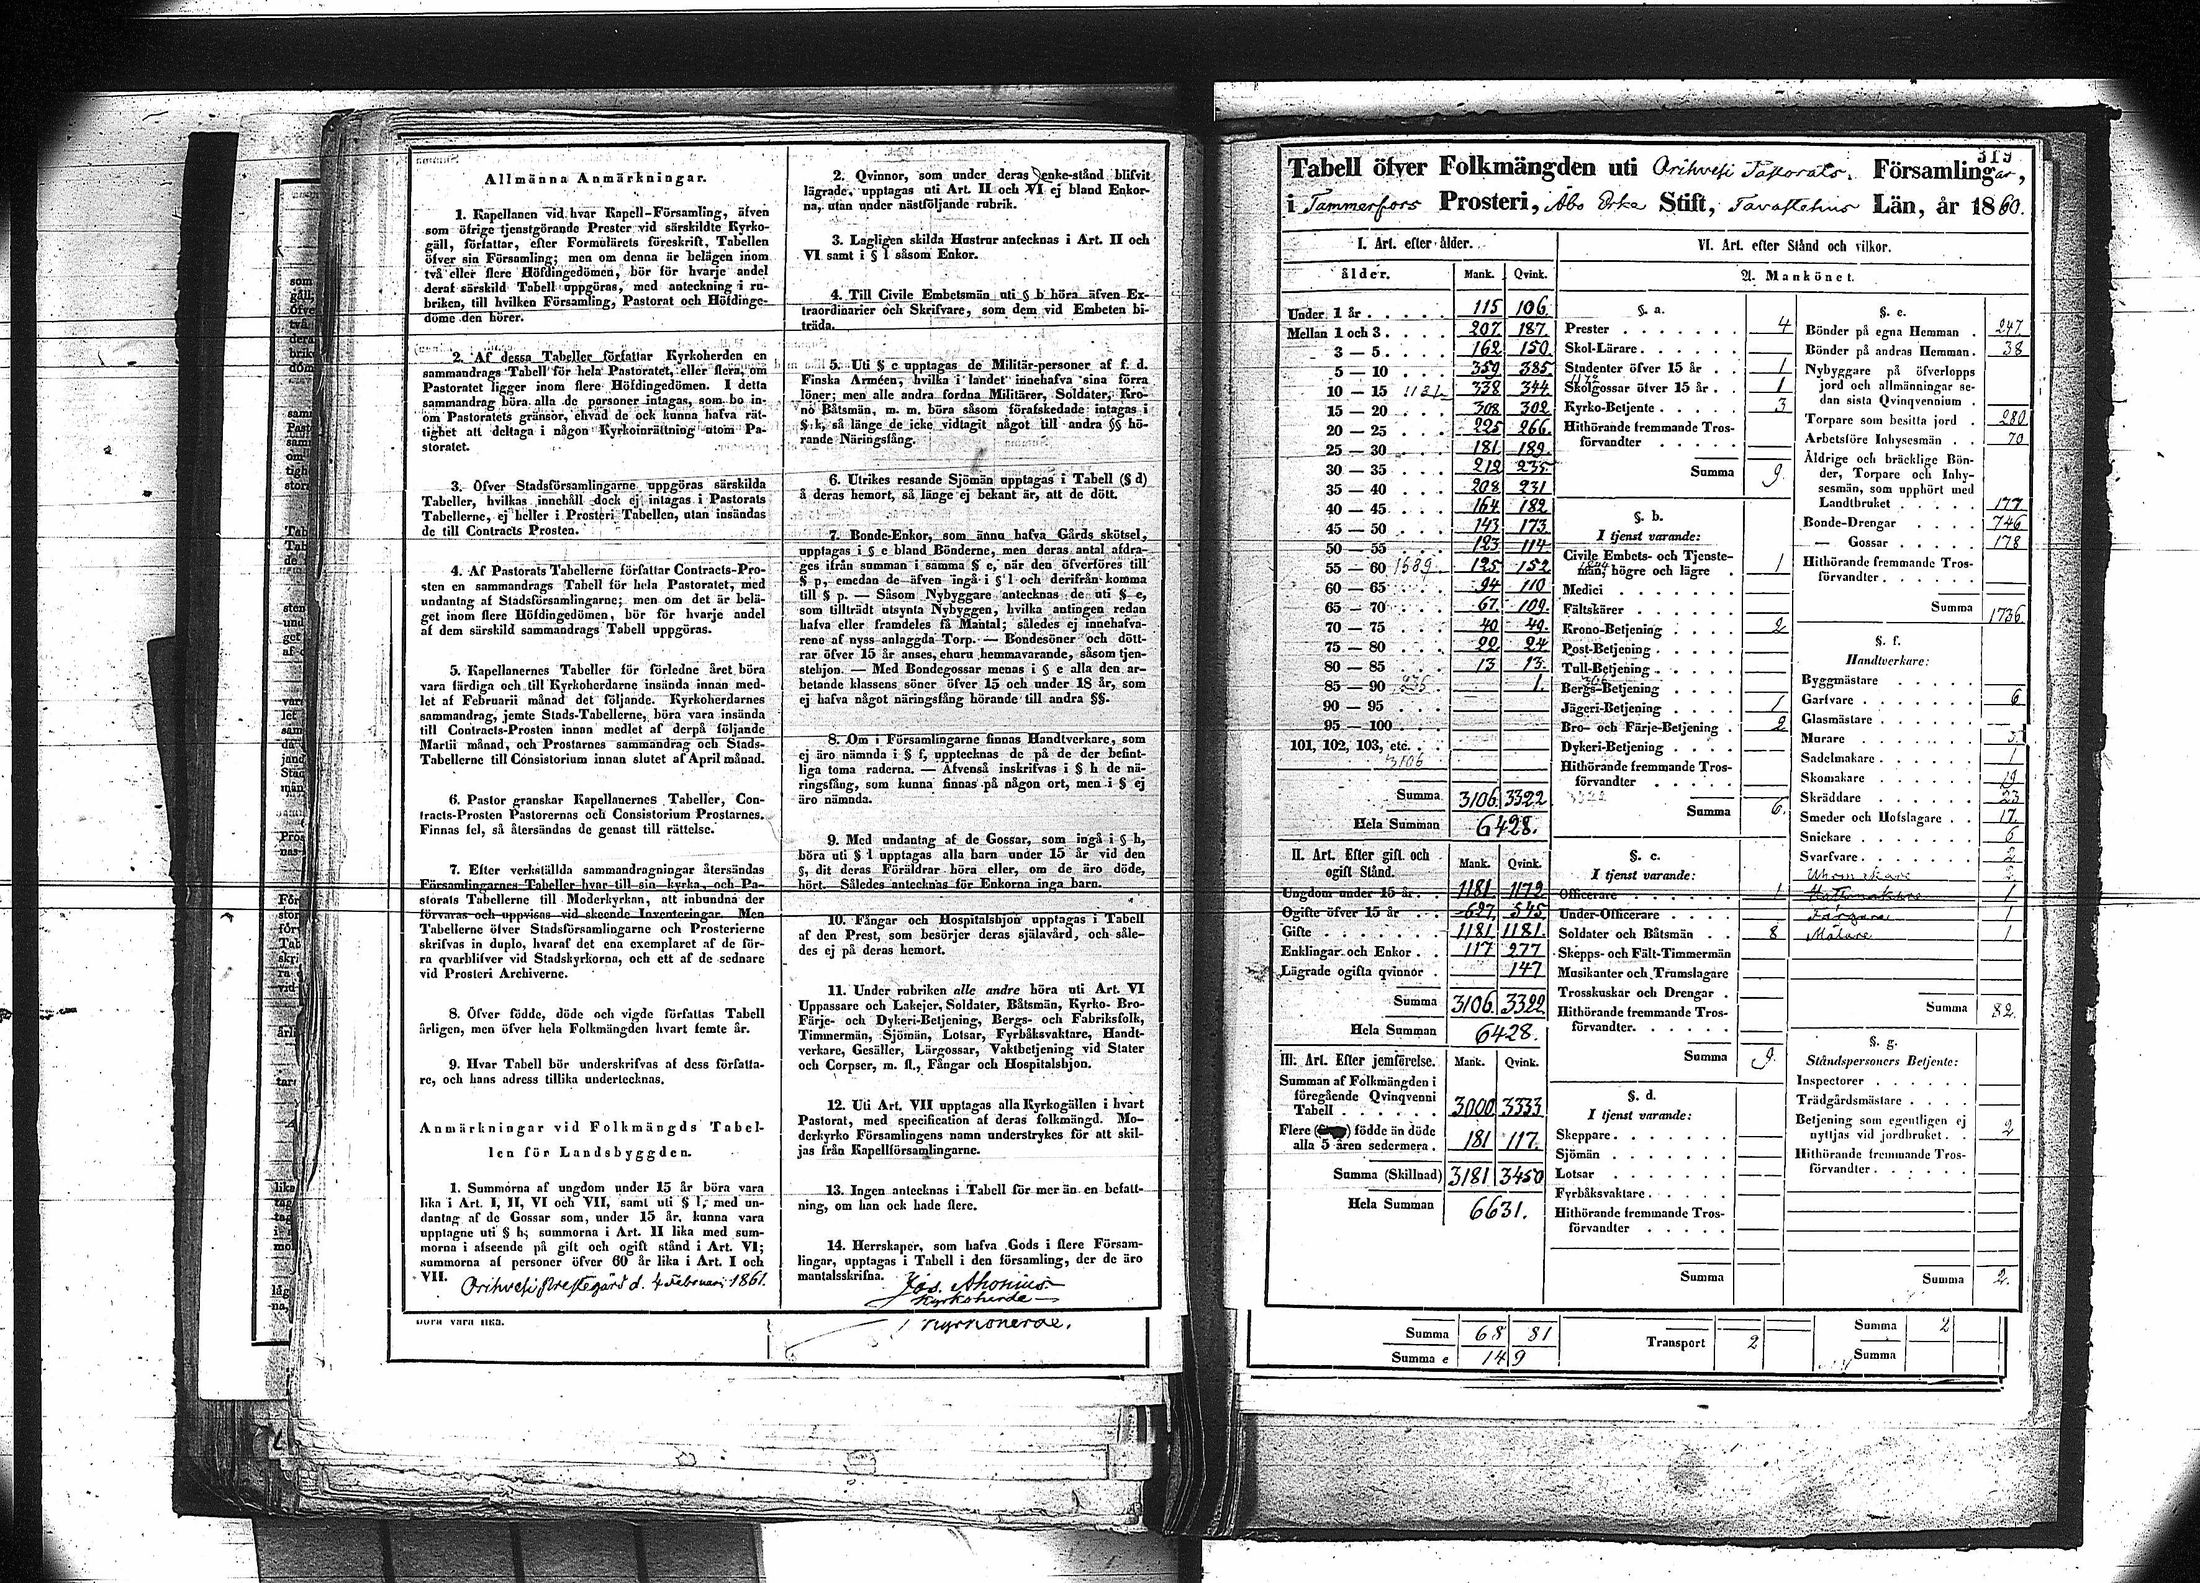 Allmänna Anmärkningar.
1. Kapellanen vid hvar Kapell-Församling, äfven
som öfrige tjenstgörande Prester vid särskildte Kyrko-
gäll, författar, efter Formulärets föreskrift, Tabellen
öfver sin Församling; men om denna är belägen inom
två eller flere Höfdingedömen, bör för hvarje andel
deraf särskild Tabell uppgöras, med anteckning i ru-
briken, till hvilken Församling, Pastorat och Höfdinge-
döme den hörer.
2. Af dessa Tabeller författar Kyrkoherden en
sammandrags Tabell för hela Pastoratet, eller flera, om
Pastoratet ligger inom flere Höfdingedömen. I detta
sammandrag böra alla de personer intagas, som bo in-
om Pastoratets gränsor, ehvad de ock kunna hafva rät-
tighet att deltaga i någon Kyrkoinrättning utom Pa-
storatet.
3. Öfver Stadsförsamlingarne uppgöras särskilda
Tabeller, hvilkas innehåll dock ej intages i Pastorats
Tabellerne, ej heller i Prosteri Tabellen, utan insändas
de till Contracts Prosten.
4. Af Pastorats Tabellerne författar Contracts-Pro-
sten en sammandrags Tabell för hela Pastoratet, med
undantag af Stadsförsamlingarne; men om det är belä-
get inom flere Höfdingedömen, bör för hvarje andel
af dem särskild sammandrags Tabell uppgöras.
5. Kapellanernes Tabeller för förledne året böra
vara färdiga och till Kyrkoherdarne insända innan med-
let af Februarii månad det följande. Kyrkoherdarnes
sammandrag, jemte Stads-Tabellerne, böra vara insända
till Contracts-Prosten innan medlet af derpå följande
Martii månad, och Prostarnes sammandrag och Stads-
Tabellerne till Consistorium innan slutet af April månad.
6. Pastor granskar Kapellanernes Tabeller, Con-
tracts-Prosten Pastorernas och Consistorium Prostarnes.
Finnas fel, så återsändas de genast till rättelse.
7. Efter verkställda sammandragningar återsändas
Församlingarnes Tabeller hvar till sin kyrka, och Pa-
storats Tabellerne till Moderkyrkan, att inbundna der
förvaras och uppvisas vid skeende Inventeringar. Men
Tabellerne öfver Stadsförsamlingarne och Prosterierne
skrifvas in duplo, hvaraf det ena exemplaret af de för-
ra qvarblifver vid Stadskyrkorna, och ett af de sednare
vid Prosteri Archiverne.
8. Öfver födde, döde och vigde författas Tabell
årligen, men öfver hela Folkmängden hvart femte år.
9. Hvar Tabell bör underskrifvas af dess författa-
re, och hans adress tillika undertecknas.
Anmärkningar vid Folkmängds Tabel-
len för Landsbyggden.
1. Summorna af ungdom under 15 år böra vara
lika i Art. I, II, VI och VII, samt uti § l, med un-
dantag af de Gossar som, under 15 år, kunna vara
upptagne uti § h; summorna i Art. II lika med sum-
morna i afseende på gift och ogift stånd i Art. VI;
summorna af personer öfver 60 år lika i Art. I och
VII.
Orihvesi Prestegård d. 4 Februari 1861.
böra vara lika.
2. Qvinnor, som under deras enke-stånd blifvit
lägrade, upptagas uti Art. II och VI ej bland Enkor-
na, utan under nästföljande rubrik.
3. Lagligen skilda Hustrur antecknas i Art. II och
VI samt i § l såsom Enkor.
4. Till Civile Embetsmän uti § b höra äfven Ex-
traordinarier och Skrifvare, som dem vid Embeten bi-
träda.
5. Uti § c upptagas de Militär-personer af f. d.
Finska Arméen, hvilka i landet innehafva sina förra
löner; men alle andra fordna Militärer, Soldater, Kro-
no Båtsmän, m. m. böra såsom förafskedade intagas i
§ k, så länge de icke vidtagit något till andra §§ hö-
rande Näringsfång.
6. Utrikes resande Sjömän upptagas i Tabell (§ d)
å deras hemort, så länge ej bekant är, att de dött.
7. Bonde-Enkor, som ännu hafva Gårds skötsel,
upptagas i § e bland Bönderne, men deras antal afdra-
ges ifrån summan i samma § e, när den öfverföres till
§ p, emedan de äfven ingå i § l och derifrån komma
till § p. — Såsom Nybyggare antecknas de uti § e,
som tillträdt utsynta Nybyggen, hvilka antingen redan
hafva eller framdeles få Mantal; således ej innehafva-
rene af nyss anlaggda Torp. — Bondesöner och dött-
rar öfver 15 år anses, ehuru hemmavarande, såsom tjen-
stehjon. — Med Bondegossar menas i § e alla den ar-
betande klassens söner öfver 15 och under 18 år, som
ej hafva något näringsfång hörande till andra §§.
8. Om i Församlingarne finnas Handtverkare, som
ej äro nämnda i § f, upptecknas de på de der befint-
liga toma raderna. — Äfvenså inskrifvas i § h de nä-
ringsfång, som kunna finnas på någon ort, men i § ej
äro nämnda.
9. Med undantag af de Gossar, som ingå i § h,
böra uti § l upptagas alla barn under 15 år vid den
§, dit deras Föräldrar höra eller, om de äro döde,
hört. Således antecknas för Enkorna inga barn.
10. Fångar och Hospitalshjon upptagas i Tabell
af den Prest, som besörjer deras själavård, och såle-
des ej på deras hemort.
11. Under rubriken alle andre höra uti Art. VI
Uppassare och Lakejer, Soldater, Båtsmän, Kyrko- Bro-
Färje- och Dykeri-Betjening, Bergs- och Fabriksfolk,
Timmermän, Sjömän, Lotsar, Fyrbåksvaktare, Handt-
verkare, Gesäller, Lärgossar, Vaktbetjening vid Stater
och Corpser, m. fl., Fångar och Hospitalshjon.
12. Uti Art. VII upptagas alla Kyrkogällen i hvart
Pastorat, med specification af deras folkmängd. Mo-
derkyrko Församlingens namn understrykes för att skil-
jas från Kapellförsamlingarne.
13. Ingen antecknas i Tabell för mer än en befatt-
ning, om han ock hade flere.
14. Herrskaper, som hafva Gods i flere Försam-
lingar, upptagas i Tabell i den församling, der de äro
mantalsskrifna.
Jos. Ahonius
Kyrkoherde
Kyrkoherde.
319
Tabell öfver Folkmängden uti Orihvesi Pastorats Församlingar,
i Tammerfors Prosteri, Åbo Erke Stift, Tavastehus Län, år 1860.
I. Art. efter ålder.
ålder. Mank. Qvink.
Under 1 år 115 106
Mellan 1 och 3 207 187
3 — 5 162 150
5 — 10 359 385
10 — 15 1181 338 344
15 — 20 308 302
20 — 25 225 266
25 — 30 181 189
30 — 35 212 235
35 — 40 208 231
40 — 45 164 182
45 — 50 143 173
50 — 55 123 114
55 — 60 1689 125 152
60 — 65 94 110
65 — 70 67 109
70 — 75 40 49
75 — 80 22 24
80 — 85 13 13
85 — 90 1
90 — 95
95 — 100
101, 102, 103, etc.
3106
Summa 3106 3322
Hela Summan 6428.
II. Art. Efter gift och
ogift Stånd. Mank. Qvink.
Ungdom under 15 år 1181 1172
Ogifte öfver 15 år 627 545
Gifte 1181 1181
Enklingar och Enkor 117 277
Lägrade ogifta qvinnor 147
Summa 3106 3322
Hela Summan 6428.
III. Art. Efter jemförelse. Mank. Qvink.
Summan af Folkmängden i
föregående Qvinqvenni
Tabell 3000 3333
Flere födde än döde
alla 5 åren sedermera 181 117
Summa (Skillnad) 3181 3450
Hela Summan 6631.
VI. Art. efter Stånd och vilkor.
A. Mankönet.
§. a.
Prester 4
Skol-Lärare
Studenter öfver 15 år 1
1172
Skolgossar öfver 15 år 1
Kyrko-Betjente 3
Hithörande fremmande Tros-
förvandter
Summa 9
§. b.
I tjenst varande:
Civile Embets- och Tjenste-
män, högre och lägre 1
Medici
Fältskärer
Krono-Betjening 2
Post-Betjening
Tull-Betjening
Bergs-Betjening
Jägeri-Betjening 1
Bro- och Färje-Betjening 2
Dykeri-Betjening
Hithörande fremmande Tros-
förvandter
3322
Summa 6.
§. c.
I tjenst varande:
Officerare 1
Under-Officerare
Soldater och Båtsmän 8
Skepps- och Fält-Timmermän
Musikanter och Trumslagare
Trosskuskar och Drengar
Hithörande fremmande Tros-
förvandter
Summa 9.
§. d.
I tjenst varande:
Skeppare
Sjömän
Lotsar
Fyrbåksvaktare
Hithörande fremmande Tros-
förvandter
Summa
§. e.
Bönder på egna Hemman 247
Bönder på andras Hemman 38
Nybyggare på öfverlopps
jord och allmänningar se-
dan sista Qvinqvennium
Torpare som besitta jord 280
Arbetsföre Inhysesmän 70
Åldrige och bräcklige Bön-
der, Torpare och Inhy-
sesmän, som upphört med
Landtbruket 177
Bonde-Drengar 746
— Gossar 178
Hithörande fremmande Tros-
förvandter
Summa 1736
§. f.
Handtverkare:
Byggmästare
Garfvare 6
Glasmästare
Murare 3
Sadelmakare 1
Skomakare 19
Skräddare 23
Smeder och Hofslagare 17
Snickare 6
Svarfvare 2
Uhrmakare 2
Hattmakare 1
Färgare 1
Målare 1
Summa 82
§. g.
Ståndspersoners Betjente:
Inspectorer
Trädgårdsmästare
Betjening som egentligen ej
nyttjas vid jordbruket 2
Hithörande fremmande Tros-
förvandter
Summa 2.
Summa 68 81
Summa e 149
Transport 2
Summa 2
Summa